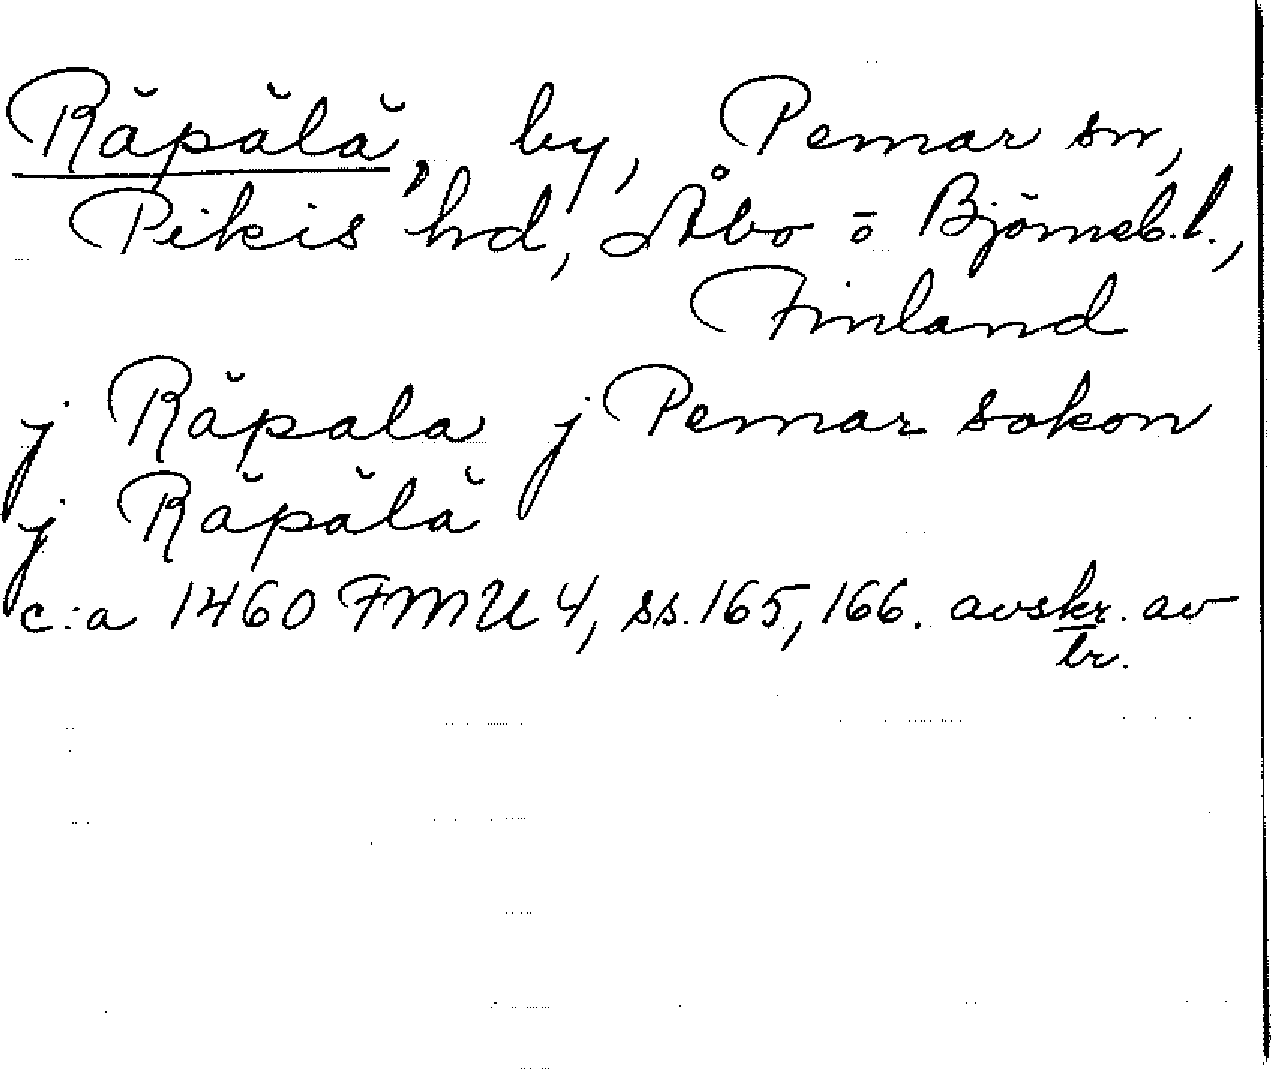 Räpälä, by, Pemar sn,
Pikis hd, Åbo o Björneb.l.,
Finland
j Räpala j Pemar sokon
j Räpälä
c:a 1460 FMU 4, ss. 165, 166. avskr. av
br.